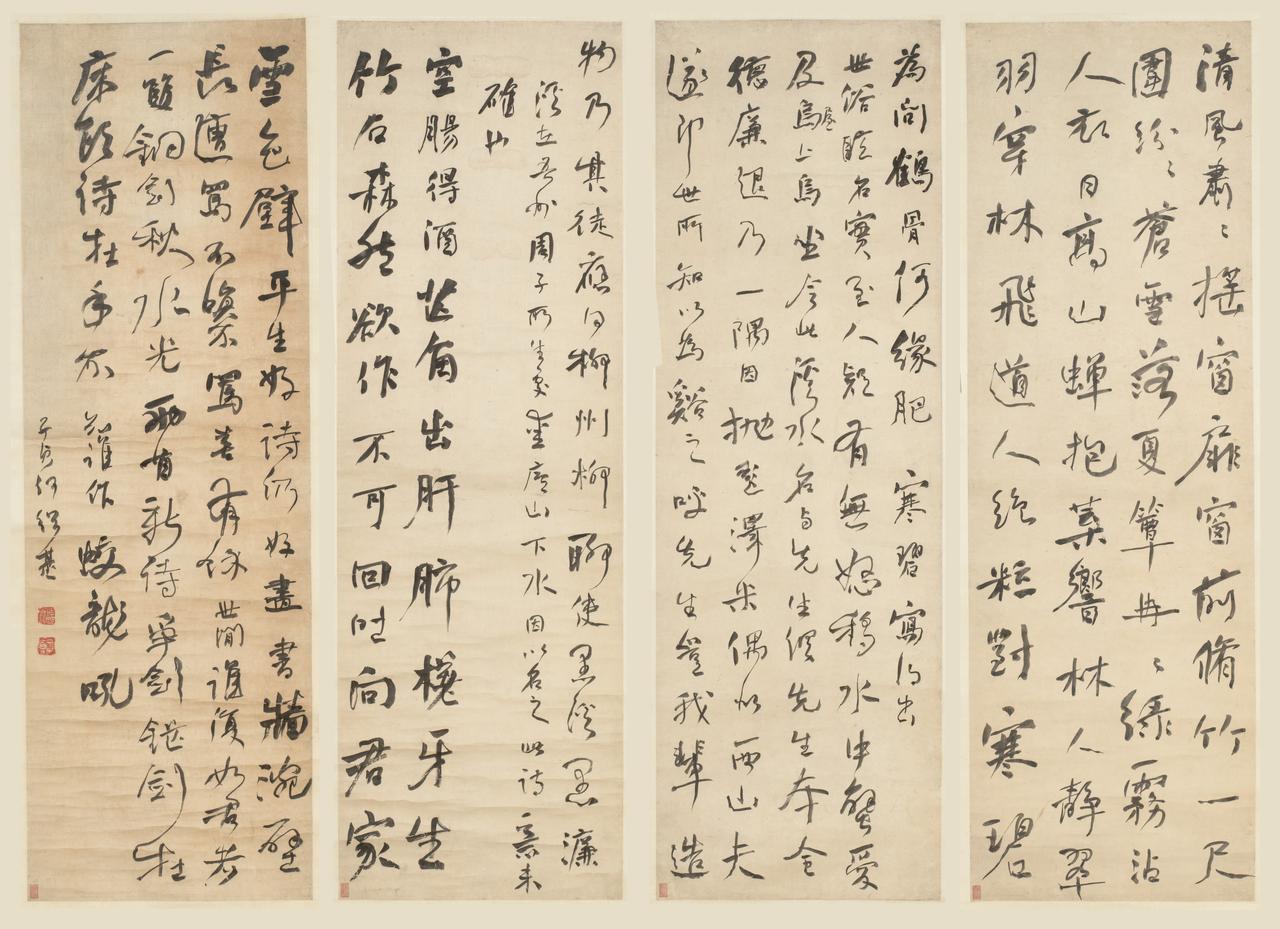 清風肅々搖窗扉窗前脩竹一尺
圍紛々蒼雪落夏簟冉々綠霧沾
人衣日高山蟬抱葉響林人靜翠
羽穿林飛道人絕粒對寒碧
為問鶴骨何緣肥 寒碧寫得出
世俗眩名實至人疑有無怒移水中蟹愛
及烏屋上烏坐令此溪水名與先生俱先生本全
德廉退乃一隅因拋彭澤米偶似西山夫
遂即世所知以為谿之呼先生豈我輩造
物乃其徒應同柳州柳聊使愚溪愚 濂
溪在吾州周子所生處愛廬山下水因以名之此詩意未
確也
空腸得酒芒角出肝肺槎牙生
竹石森然欲作不可回吐向君家
雪色壁平生好詩仍好畫書牆涴壁
長遭罵不嗔罵喜有餘世間誰復如君者
一雙銅劍秋水光兩首新詩爭劍鋩劍在
床頭詩在手不知誰作蛟龍吼
子貞何紹基